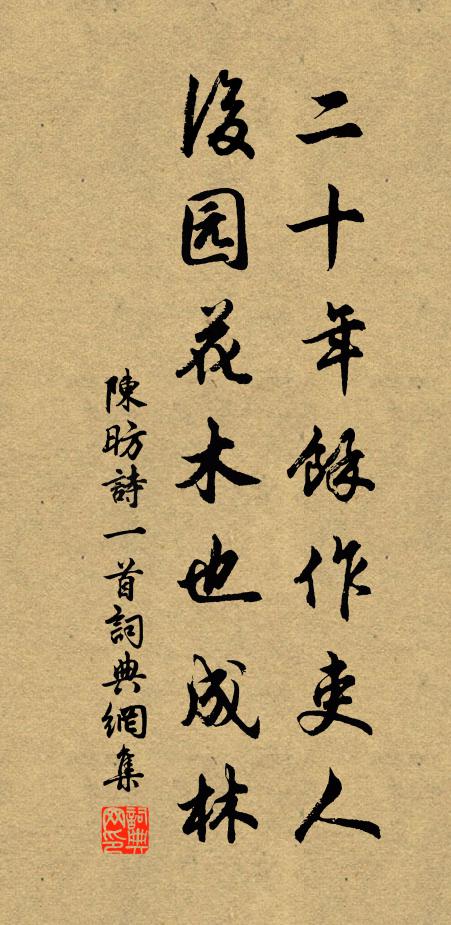 二十年餘作吏人
後园花木也成林
陳昉詩一首詞典網集
詞典网印